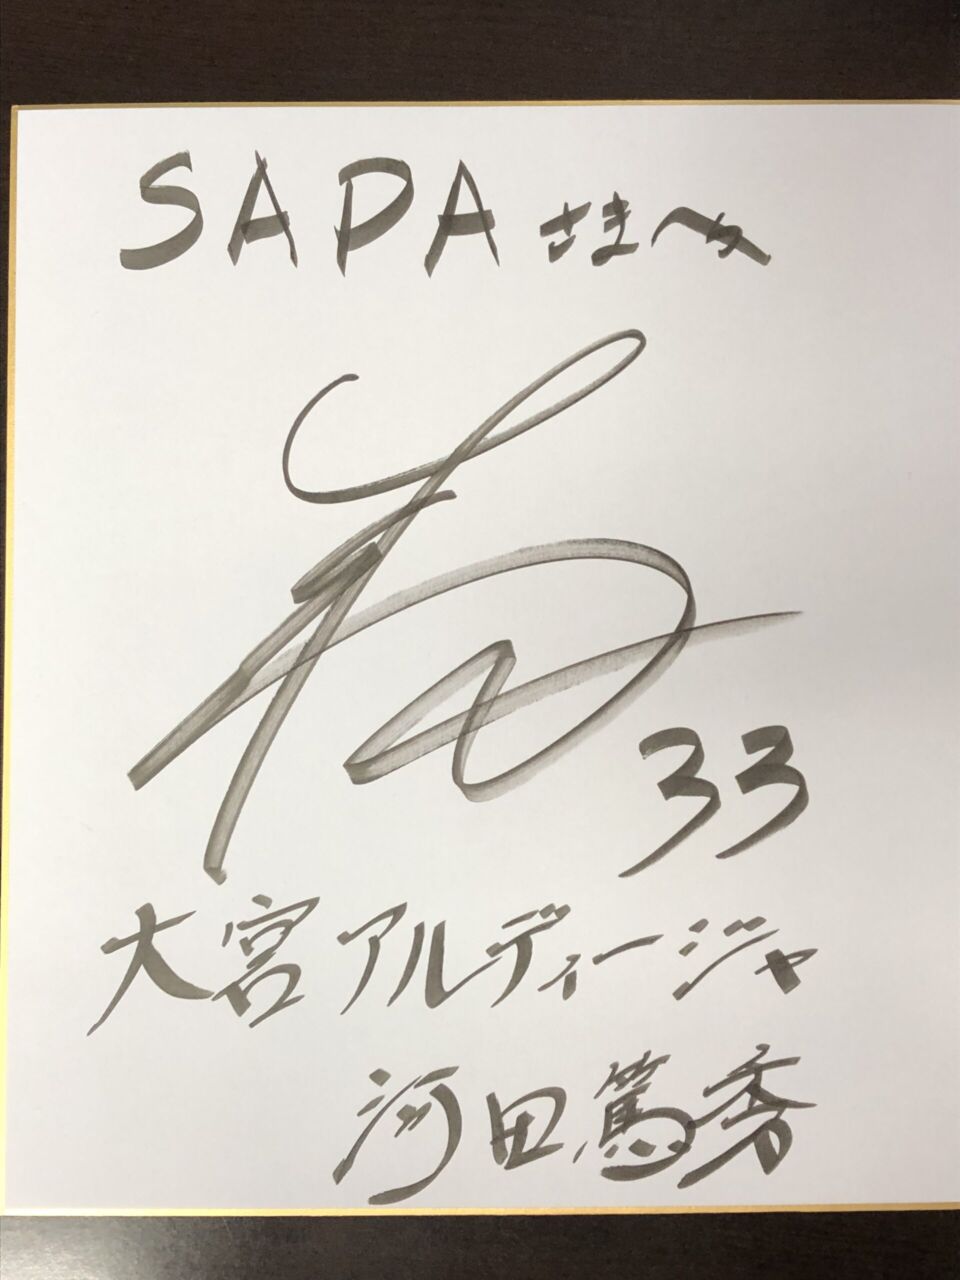 SAPAさまへ
33
大宮アルディージャ
河田篤秀